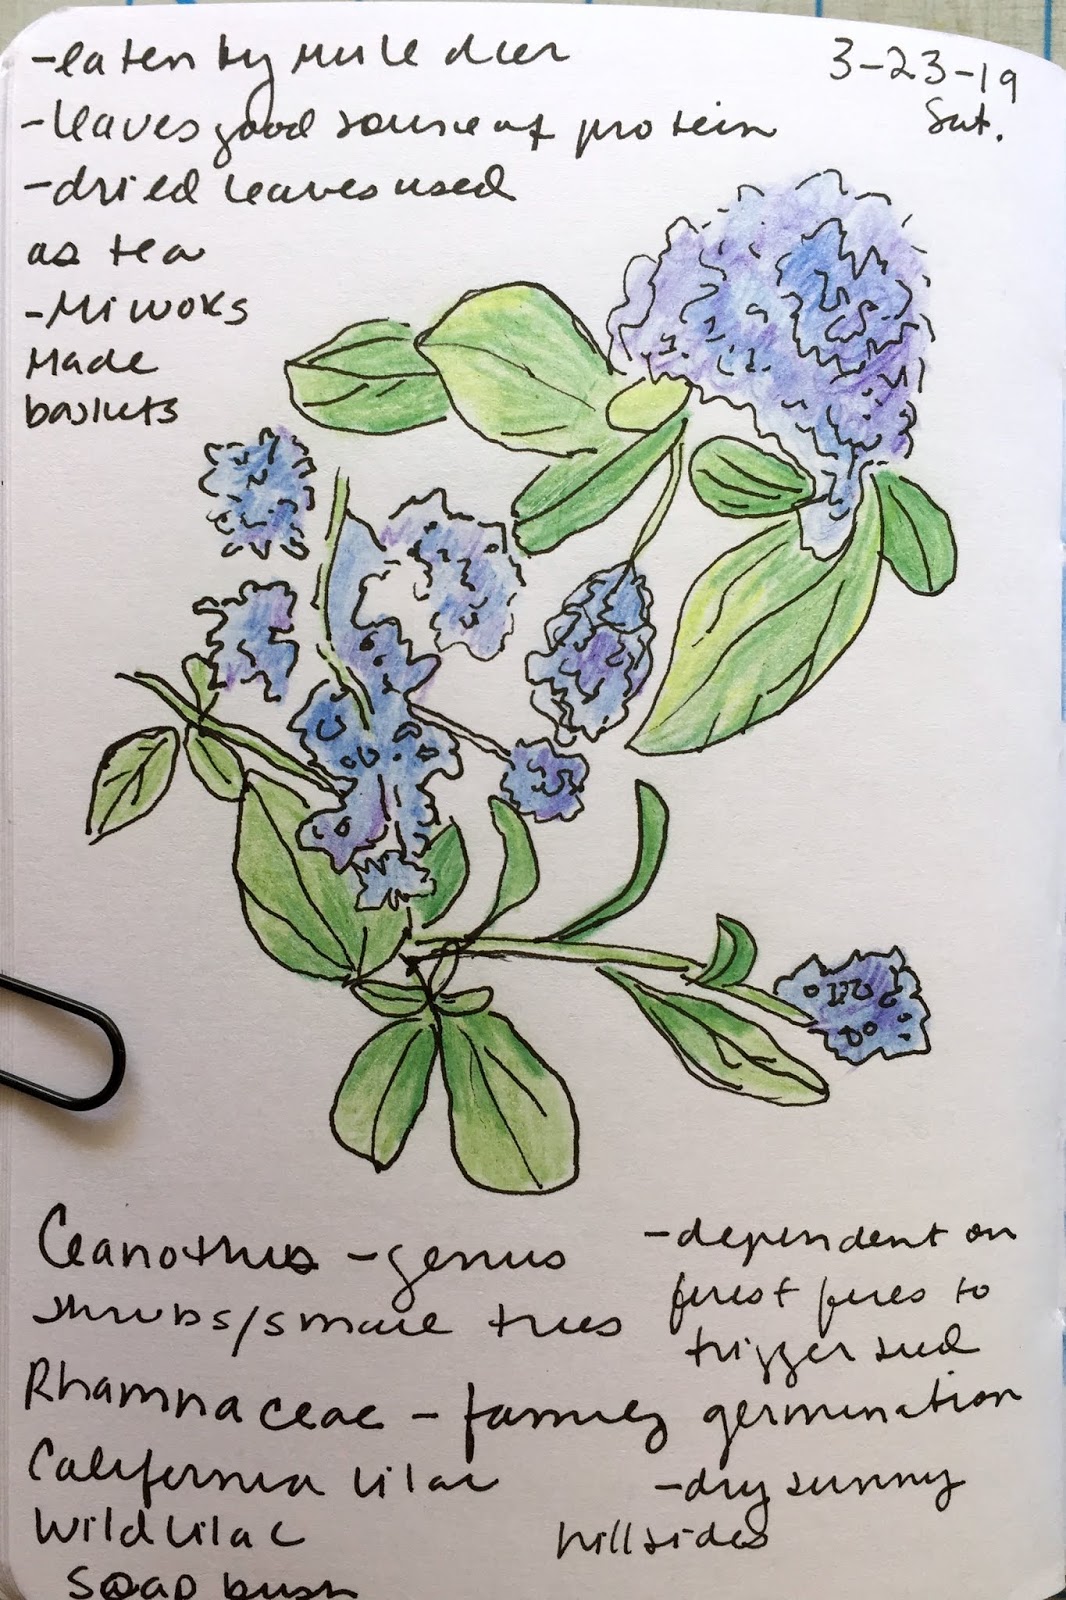 -eaten by Mule deer
3-23-19
Sat.
-leaves good source of protein
-dried leaves used
as tea
-Miwoks
Made
baskets
Ceanothus -genus
shrubs/small trees
Rhamnaceae - family
California lilac
Wild lilac
Soap bush
-dependent on
forest fires to
trigger seed
germination
-dry sunny
hillsides